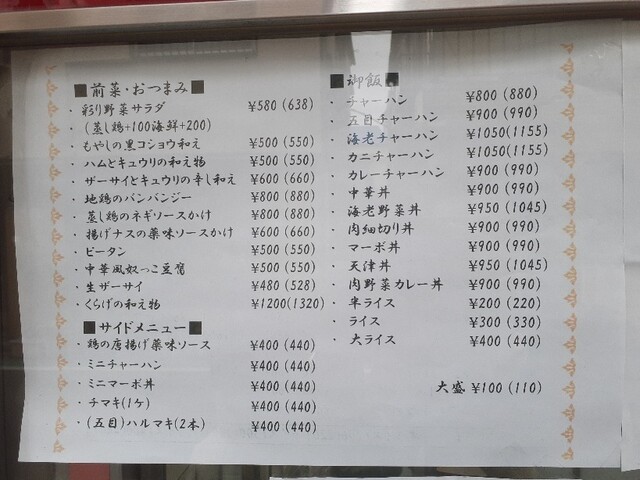 ■前菜・おつまみ■
・彩り野菜サラダ ¥580(638)
・(蒸し鶏+100海鮮+200)
・もやしの黒コショウ和え ¥500(550)
・ハムとキュウリの和え物 ¥500(550)
・ザーサイとキュウリの辛し和え ¥600(660)
・地鶏のバンバンジー ¥800(880)
・蒸し鶏のネギソースかけ ¥800(880)
・揚げナスの薬味ソースかけ ¥600(660)
・ピータン ¥500(550)
・中華風奴っこ豆腐 ¥500(550)
・生ザーサイ ¥480(528)
・くらげの和え物 ¥1200(1320)
■サイドメニュー■
・鶏の唐揚げ薬味ソース ¥400(440)
・ミニチャーハン ¥400(440)
・ミニマーボ丼 ¥400(440)
・チマキ(1ケ) ¥400(440)
・(五目)ハルマキ(2本) ¥400(440)
■御飯■
・チャーハン ¥800(880)
・五目チャーハン ¥900(990)
・海老チャーハン ¥1050(1155)
・カニチャーハン ¥1050(1155)
・カレーチャーハン ¥900(990)
・中華丼 ¥900(990)
・海老野菜丼 ¥950(1045)
・肉細切り丼 ¥900(990)
・マーボ丼 ¥900(990)
・天津丼 ¥950(1045)
・肉野菜カレー丼 ¥900(990)
・半ライス ¥200(220)
・ライス ¥300(330)
・大ライス ¥400(440)
大盛 ¥100(110)